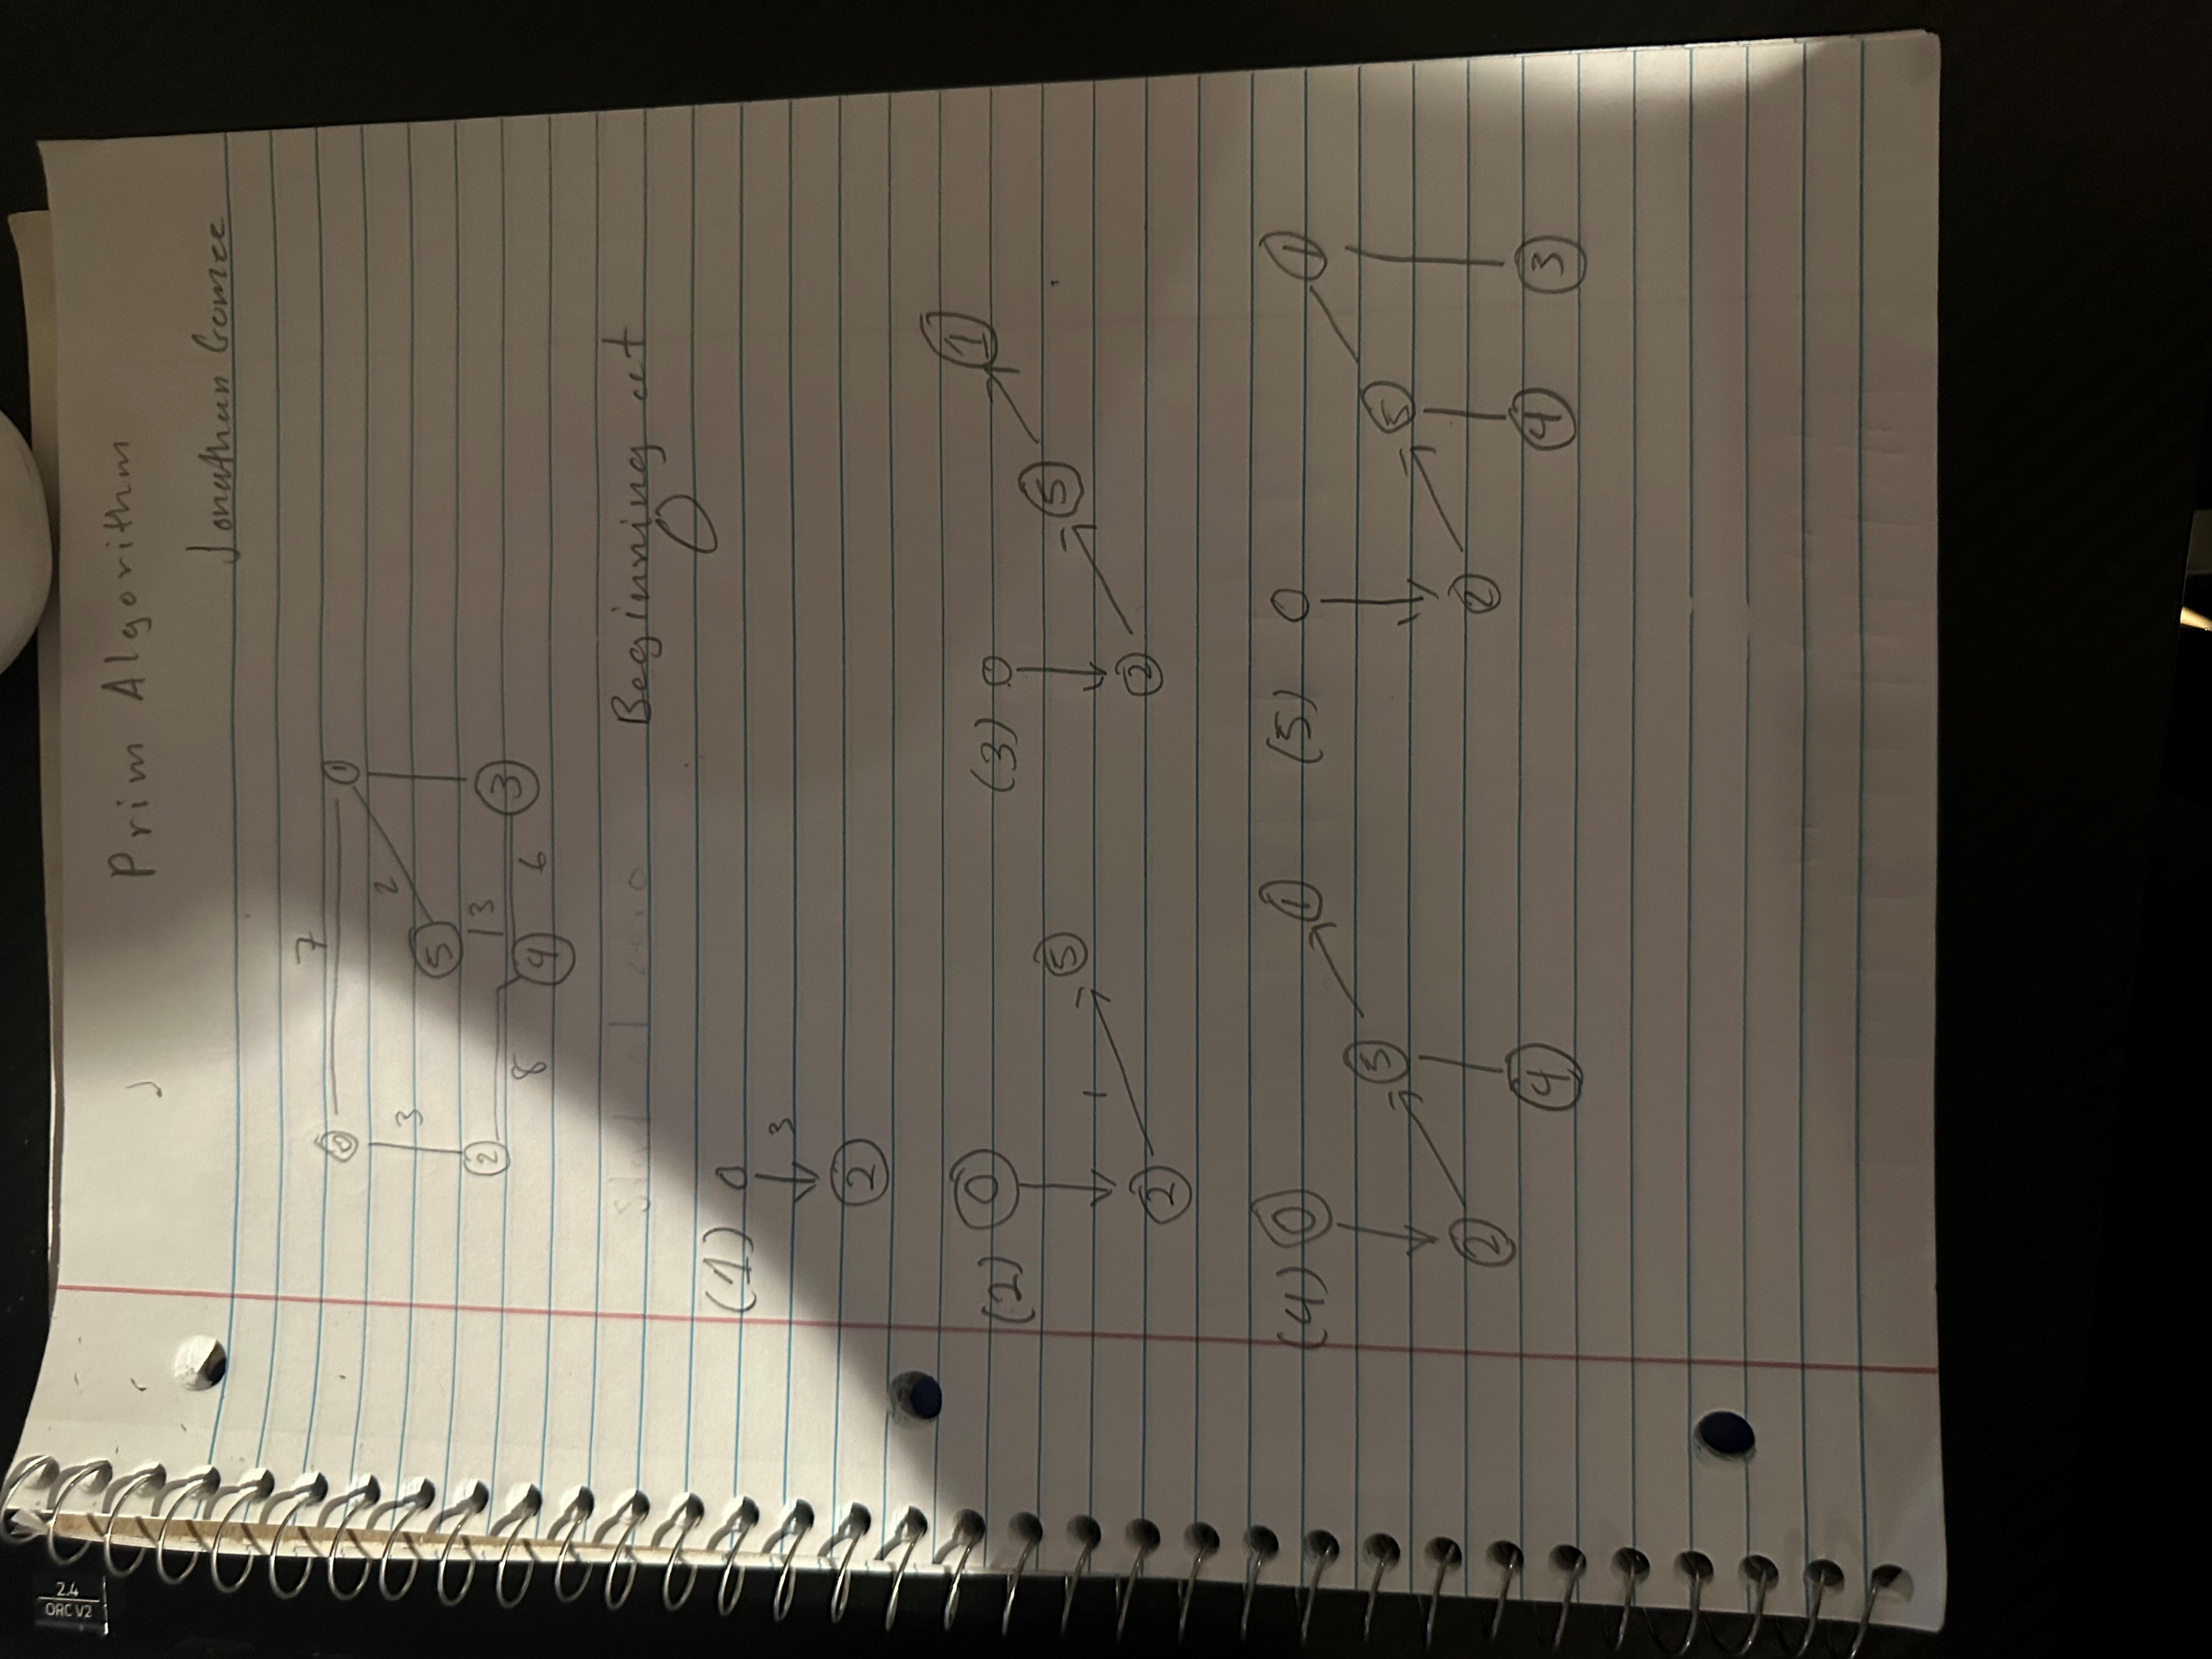 Prim Algorithm
Jonathan Gomee
7
0 1
3 2
5
3
2 3
4
8 6
Beginning at
0
(1) 0
3
2
(2) 0 5
1
2
(3) 0 1
5
2
(4) 0 1
5
2 4
(5) 0 1
5
2 4 3
2.4
ORC V2